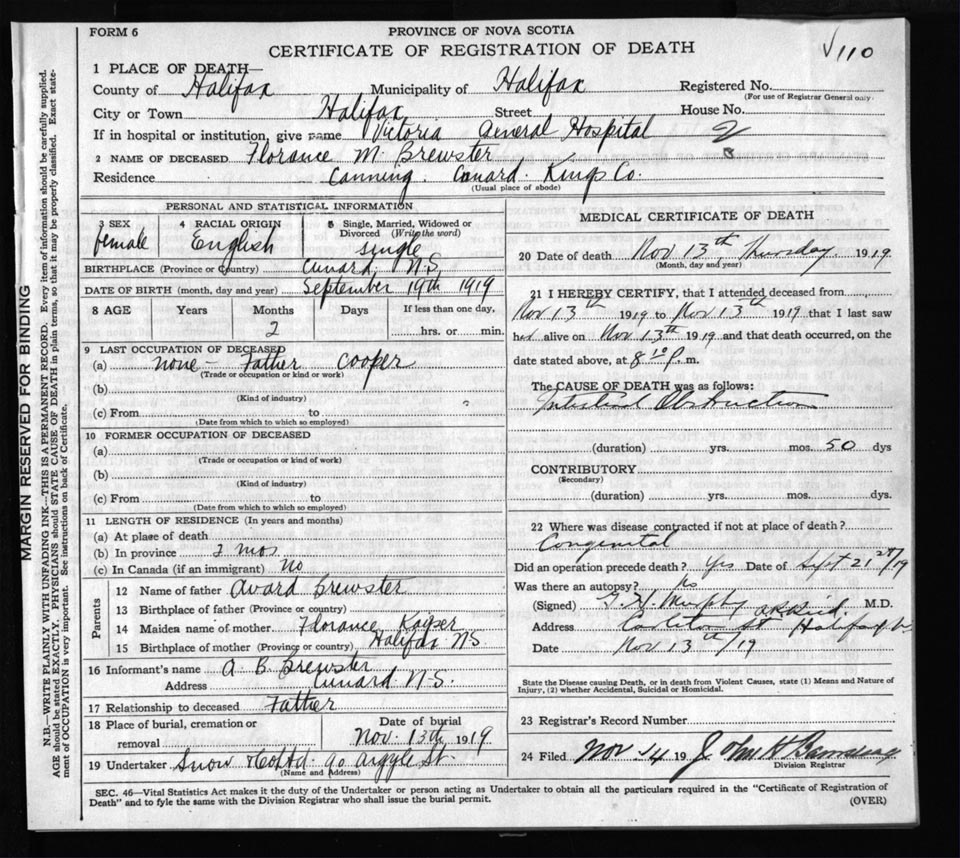 FORM 6
PROVINCE OF NOVA SCOTIA
CERTIFICATE OF REGISTRATION OF DEATH
√110
1 PLACE OF DEATH
County of Halifax Municipality of Halifax Registered No.
(For use of Registrar General only.
City or Town Halifax Street House No.
If in hospital or institution, give name Victoria General Hospital 2
8
2 NAME OF DECEASED Florance M. Brewster
Residence Canning. Cunard. Kings Co.
(Usual place of abode)
PERSONAL AND STATISTICAL INFORMATION
3 SEX female
4 RACIAL ORIGIN English
5 Single, Married, Widowed or Divorced (Write the word) single
BIRTHPLACE (Province or Country) Cunard, N.S.
DATE OF BIRTH (month, day and year) September 19th 1919
8 AGE Years Months Days If less than one day,
2 hrs. or min.
9 LAST OCCUPATION OF DECEASED
(a) none - Father Cooper
(Trade or occupation or kind of work)
(b)
(Kind of industry)
(c) From to
(Date from which to which so employed)
10 FORMER OCCUPATION OF DECEASED
(a)
(Trade or occupation or kind of work)
(b)
(Kind of industry)
(c) From to
(Date from which to which so employed)
11 LENGTH OF RESIDENCE (In years and months)
(a) At place of death
(b) In province 2 mos
(c) In Canada (if an immigrant) No
Parents
12 Name of father Avard Brewster
13 Birthplace of father (Province or country)
14 Maiden name of mother Florance
15 Birthplace of mother (Province or country) Halifax NS
16 Informant's name A. B. Brewster
Address Cunard N.S.
17 Relationship to deceased Father
18 Place of burial, cremation or removal
Date of burial
Nov. 13th 1919
19 Undertaker Snow & Co Ltd. 90 Argyle St.
(Name and Address)
MEDICAL CERTIFICATE OF DEATH
20 Date of death Nov 13th, Thursday. 1919.
(Month, day and year)
21 I HEREBY CERTIFY, that I attended deceased from
Nov 13th 1919 to Nov 13th 1919 that I last saw
her alive on Nov 13th 1919 and that death occurred, on the
date stated above, at 8 10 P. m.
The CAUSE OF DEATH was as follows:
Intestinal Obstruction
(duration) yrs. mos. 50 dys
CONTRIBUTORY
(Secondary)
(duration) yrs. mos. dys.
22 Where was disease contracted if not at place of death?
Congenital
Did an operation precede death? Yes Date of Sept 21st/19
Was there an autopsy? No
(Signed) G. H. Murphy M.D.
Address Carleton St Halifax
Date Nov 13th/19
State the Disease causing Death, or in death from Violent Causes, state (1) Means and Nature of
Injury, (2) whether Accidental, Suicidal or Homicidal.
23 Registrar's Record Number
24 Filed Nov 14 19
Division Registrar
SEC. 46—Vital Statistics Act makes it the duty of the Undertaker or person acting as Undertaker to obtain all the particulars required in the "Certificate of Registration of
Death" and to fyle the same with the Division Registrar who shall issue the burial permit.
(OVER)
MARGIN RESERVED FOR BINDING
N.B.—WRITE PLAINLY WITH UNFADING INK—THIS IS A PERMANENT RECORD. Every item of information should be carefully supplied.
AGE should be stated EXACTLY. PHYSICIANS should STATE CAUSE OF DEATH in plain terms, so that it may be properly classified. Exact state-
ment of OCCUPATION is very important. See instructions on back of Certificate.